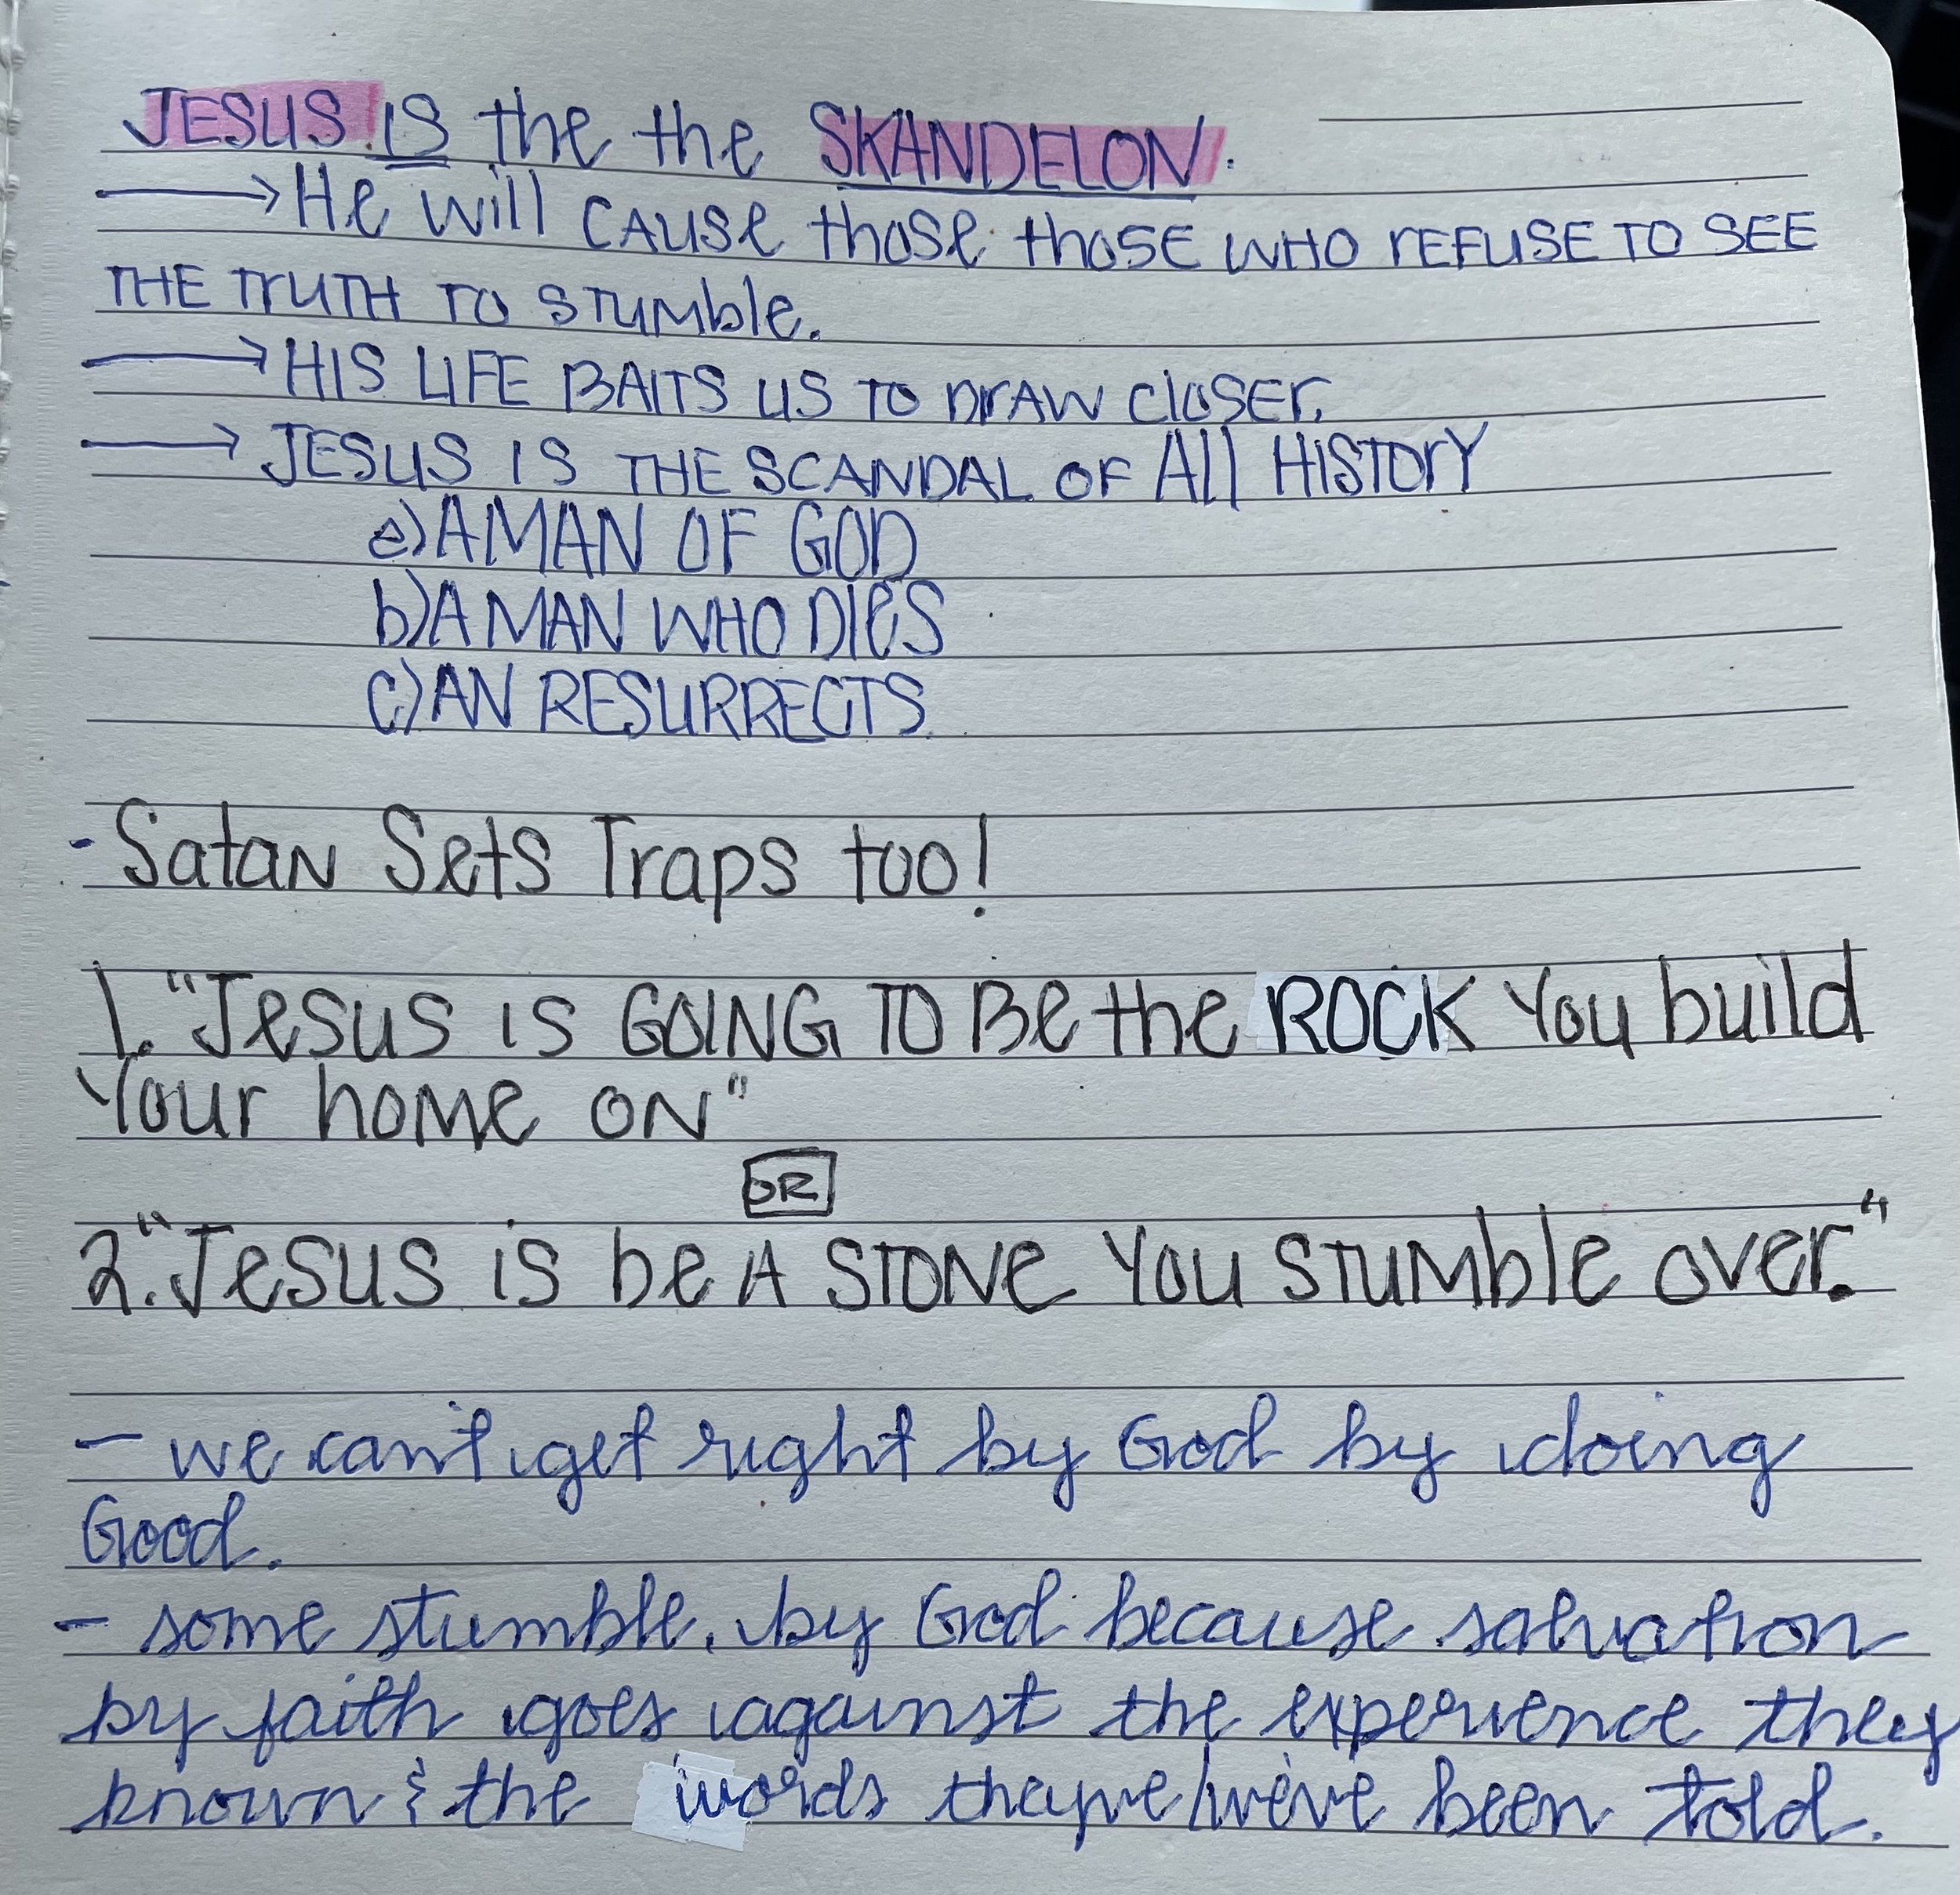 JESUS IS the the SKANDELON.
→ He will CAUSe those those WHO reFUSE TO SEE
THE TrUTH TO STUMble.
→ HIS LIFE BAITS US TO DrAW CloSEr.
→ JESUS IS THE SCANDAL OF All HISTOrY
a) A MAN OF GOD
b) A MAN WHO DIeS
c) AN RESURRECTS
- Satan Sets Traps too!
1. "Jesus is GOING TO Be the ROCK You build
Your home ON"
OR
2. "Jesus is be A STONe You STUMble over."
- we can't get right by God by doing
Good.
- some stumble. by God because salvation
by faith goes against the experience they
known & the words theyve/we've been told.